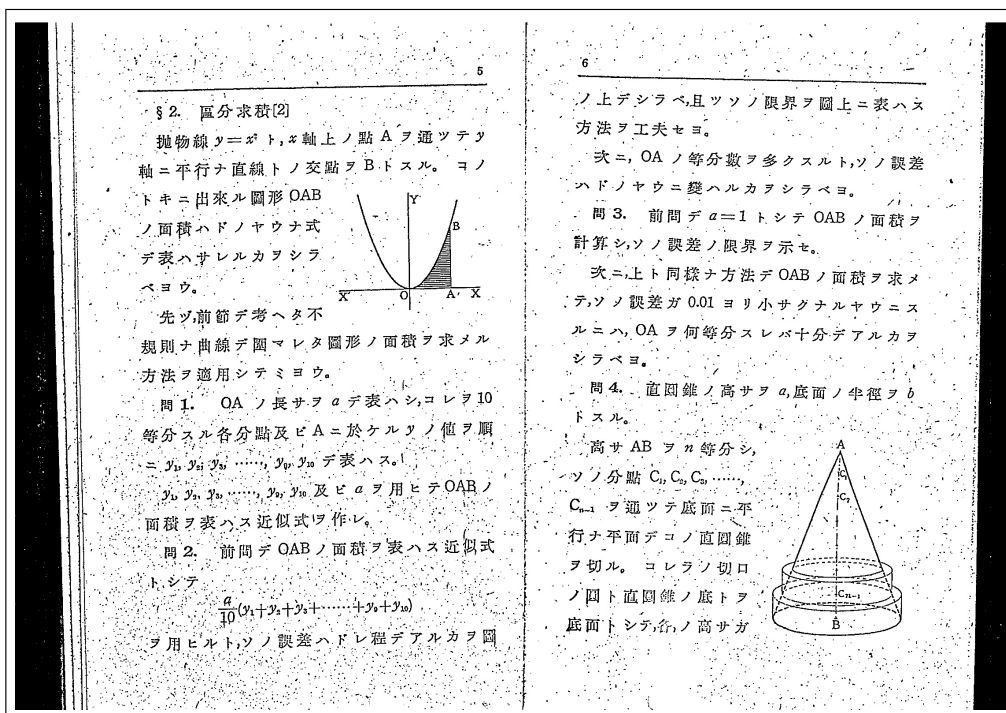 5
§2. 區分求積[2]
拋物線 y=x² ト, x 軸上ノ點 A ヲ通ツテ y
軸ニ平行ナ直線トノ交點ヲ B トスル。 コノ
トキニ出來ル圖形 OAB
ノ面積ハドノヤウナ式
デ表ハサレルカヲシラ
ベヨウ。
Y
B
X'
O
A
X
先ヅ,前節デ考ヘタ不
規則ナ曲線デ圍マレタ圖形ノ面積ヲ求メル
方法ヲ適用シテミヨウ。
問 1. OA ノ長サヲ a デ表ハシ,コレヲ 10
等分スル各分點及ビ A ニ於ケル y ノ値ヲ順
ニ y₁, y₂, y₃, ……, y₉, y₁₀ デ表ハス。
y₁, y₂, y₃, ……, y₉, y₁₀ 及ビ a ヲ用ヒテ OAB ノ
面積ヲ表ハス近似式ヲ作レ。
問 2. 前問デ OAB ノ面積ヲ表ハス近似式
トシテ
a/10 (y₁+y₂+y₃+……+y₉+y₁₀)
ヲ用ヒルト,ソノ誤差ハドレ程デアルカヲ圖
6
ノ上デシラベ,且ツソノ限界ヲ圖上ニ表ハス
方法ヲ工夫セヨ。
次ニ, OA ノ等分數ヲ多クスルト,ソノ誤差
ハドノヤウニ變ハルカヲシラベヨ。
問 3. 前問デ a=1 トシテ OAB ノ面積ヲ
計算シ,ソノ誤差ノ限界ヲ示セ。
次ニ,上ト同樣ナ方法デ OAB ノ面積ヲ求メ
テ,ソノ誤差ガ 0.01 ヨリ小サクナルヤウニス
ルニハ, OA ヲ何等分スレバ十分デアルカヲ
シラベヨ。
問 4. 直圓錐ノ高サヲ a,底面ノ半徑ヲ b
トスル。
高サ AB ヲ n 等分シ,
ソノ分點 C₁, C₂, C₃, ……,
Cₙ₋₁ ヲ通ツテ底面ニ平
行ナ平面デコノ直圓錐
ヲ切ル。 コレラノ切口
ノ圓ト直圓錐ノ底トヲ
底面トシテ,各ノ高サガ
A
C₁
C₂
Cₙ₋₁
B